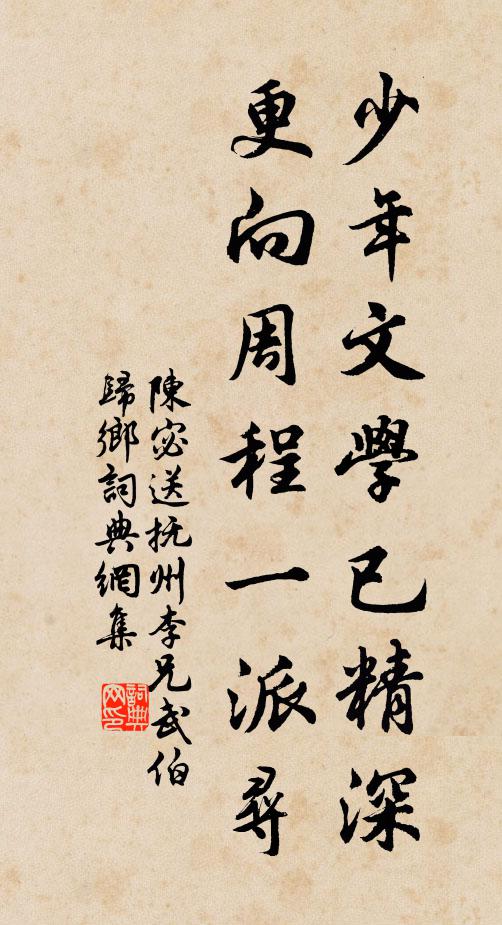 少年文學已精深
更向周程一派尋
陳宓送抚州李兄武伯
歸鄉詞典網集
詞典网印